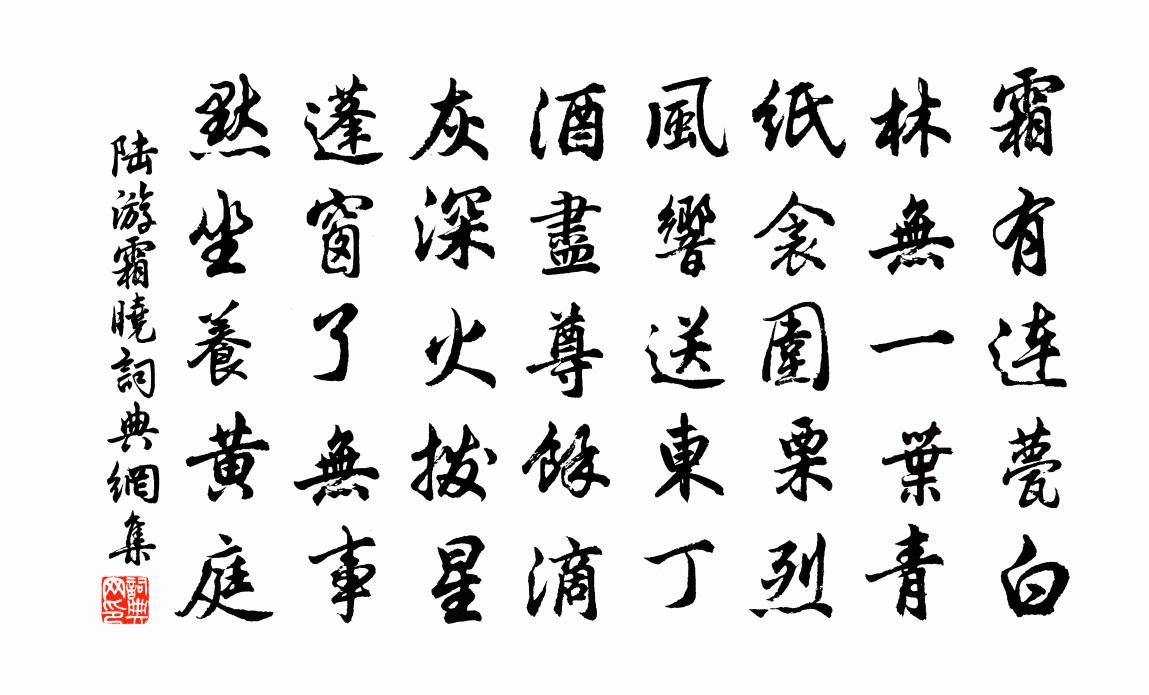 霜有连甍白
林無一葉青
紙衾圍栗烈
風響送東丁
酒盡尊餘滴
灰深火撥星
蓬窗了無事
黙坐養黄庭
陆游霜曉詞典網集
詞典网印